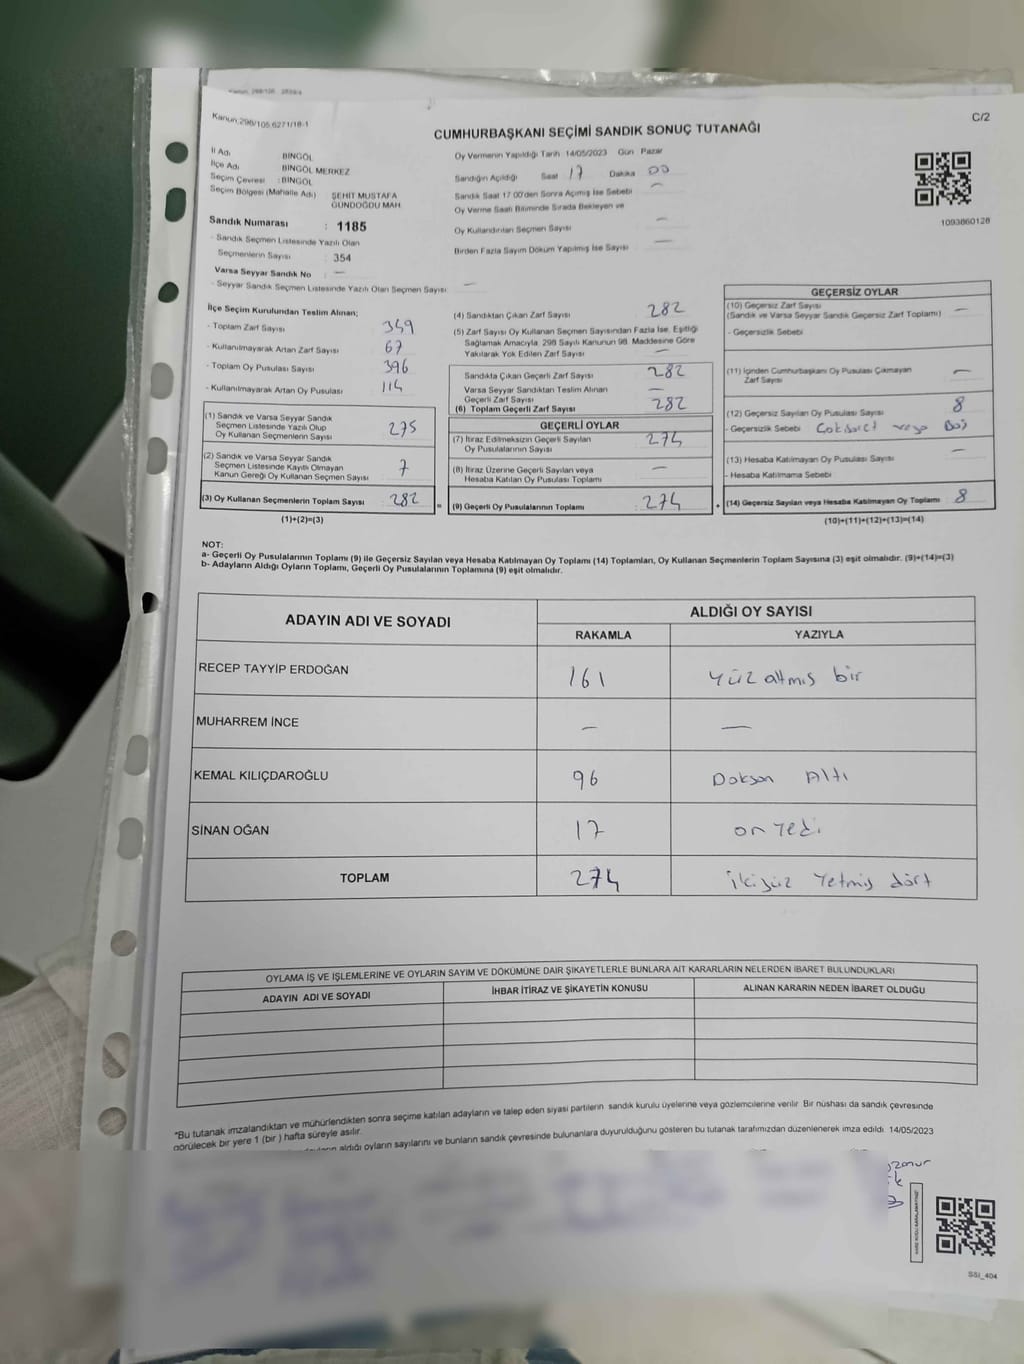 Kanun,298/105,6271/18-1
C/2
CUMHURBAŞKANI SEÇİMİ SANDIK SONUÇ TUTANAĞI
İl Adı BİNGÖL
İlçe Adı BİNGÖL MERKEZ
Seçim Çevresi : BİNGÖL
Seçim Bölgesi (Mahalle Adı) ŞEHİT MUSTAFA GÜNDOĞDU MAH
Sandık Numarası : 1185
- Sandık Seçmen Listesinde Yazılı Olan
Seçmenlerin Sayısı : 354
Varsa Seyyar Sandık No : —
- Seyyar Sandık Seçmen Listesinde Yazılı Olan Seçmen Sayısı —
Oy Vermenin Yapıldığı Tarih 14/05/2023 Gün Pazar
Sandığın Açıldığı Saat 17 Dakika 00
Sandık Saat 17 00'den Sonra Açımış İse Sebebi —
Oy Verme Saati Bitiminde Sırada Bekleyen ve
Oy Kullandırılan Seçmen Sayısı —
Birden Fazla Sayım Döküm Yapılmış İse Sayısı —
1093860128
İlçe Seçim Kurulundan Teslim Alınan;
- Toplam Zarf Sayısı 349
- Kullanılmayarak Artan Zarf Sayısı 67
- Toplam Oy Pusulası Sayısı 396
- Kullanılmayarak Artan Oy Pusulası 114
(1) Sandık ve Varsa Seyyar Sandık
Seçmen Listesinde Yazılı Olup
Oy Kullanan Seçmenlerin Sayısı 275
(2) Sandık ve Varsa Seyyar Sandık
Seçmen Listesinde Kayıtlı Olmayan
Kanun Gereği Oy Kullanan Seçmen Sayısı 7
(3) Oy Kullanan Seçmenlerin Toplam Sayısı 282
(1)+(2)=(3)
(4) Sandıktan Çıkan Zarf Sayısı 282
(5) Zarf Sayısı Oy Kullanan Seçmen Sayısından Fazla İse, Eşitliği
Sağlamak Amacıyla, 298 Sayılı Kanunun 98. Maddesine Göre
Yakılarak Yok Edilen Zarf Sayısı —
Sandıkta Çıkan Geçerli Zarf Sayısı 282
Varsa Seyyar Sandıktan Teslim Alınan
Geçerli Zarf Sayısı —
(6) Toplam Geçerli Zarf Sayısı 282
GEÇERLİ OYLAR
(7) İtiraz Edilmeksizin Geçerli Sayılan
Oy Pusulalarının Sayısı 274
(8) İtiraz Üzerine Geçerli Sayılan veya
Hesaba Katılan Oy Pusulası Toplamı —
= (9) Geçerli Oy Pusulalarının Toplamı 274
GEÇERSİZ OYLAR
(10) Geçersiz Zarf Sayısı
(Sandık ve Varsa Seyyar Sandık Geçersiz Zarf Toplamı) —
- Geçersizlik Sebebi
(11) İçinden Cumhurbaşkanı Oy Pusulası Çıkmayan
Zarf Sayısı —
(12) Geçersiz Sayılan Oy Pusulası Sayısı 8
- Geçersizlik Sebebi Çok isaret veya Boş
(13) Hesaba Katılmayan Oy Pusulası Sayısı —
- Hesaba Katılmama Sebebi
+ (14) Geçersiz Sayılan veya Hesaba Katılmayan Oy Toplamı 8
(10)+(11)+(12)+(13)=(14)
NOT:
a- Geçerli Oy Pusulalarının Toplamı (9) ile Geçersiz Sayılan veya Hesaba Katılmayan Oy Toplamı (14) Toplamları, Oy Kullanan Seçmenlerin Toplam Sayısına (3) eşit olmalıdır. (9)+(14)=(3)
b- Adayların Aldığı Oyların Toplamı, Geçerli Oy Pusulalarının Toplamına (9) eşit olmalıdır.
ADAYIN ADI VE SOYADI
ALDIĞI OY SAYISI
RAKAMLA YAZIYLA
RECEP TAYYİP ERDOĞAN 161 yüz altmış bir
MUHARREM İNCE — —
KEMAL KILIÇDAROĞLU 96 Doksan Altı
SİNAN OĞAN 17 on Yedi
TOPLAM 274 ikiyüz Yetmiş dört
OYLAMA İŞ VE İŞLEMLERİNE VE OYLARIN SAYIM VE DÖKÜMÜNE DAİR ŞİKAYETLERLE BUNLARA AİT KARARLARIN NELERDEN İBARET BULUNDUKLARI
ADAYIN ADI VE SOYADI İHBAR İTİRAZ VE ŞİKAYETİN KONUSU ALINAN KARARIN NEDEN İBARET OLDUĞU
*Bu tutanak imzalandıktan ve mühürlendikten sonra seçime katılan adayların ve talep eden siyasi partilerin sandık kurulu üyelerine veya gözlemcilerine verilir Bir nüshası da sandık çevresinde
görülecek bir yere 1 (bir ) hafta süreyle asılır.
aldığı oyların sayılarını ve bunların sandık çevresinde bulunanlara duyurulduğunu gösteren bu tutanak tarafımızdan düzenlenerek imza edildi. 14/05/2023
SSI_404